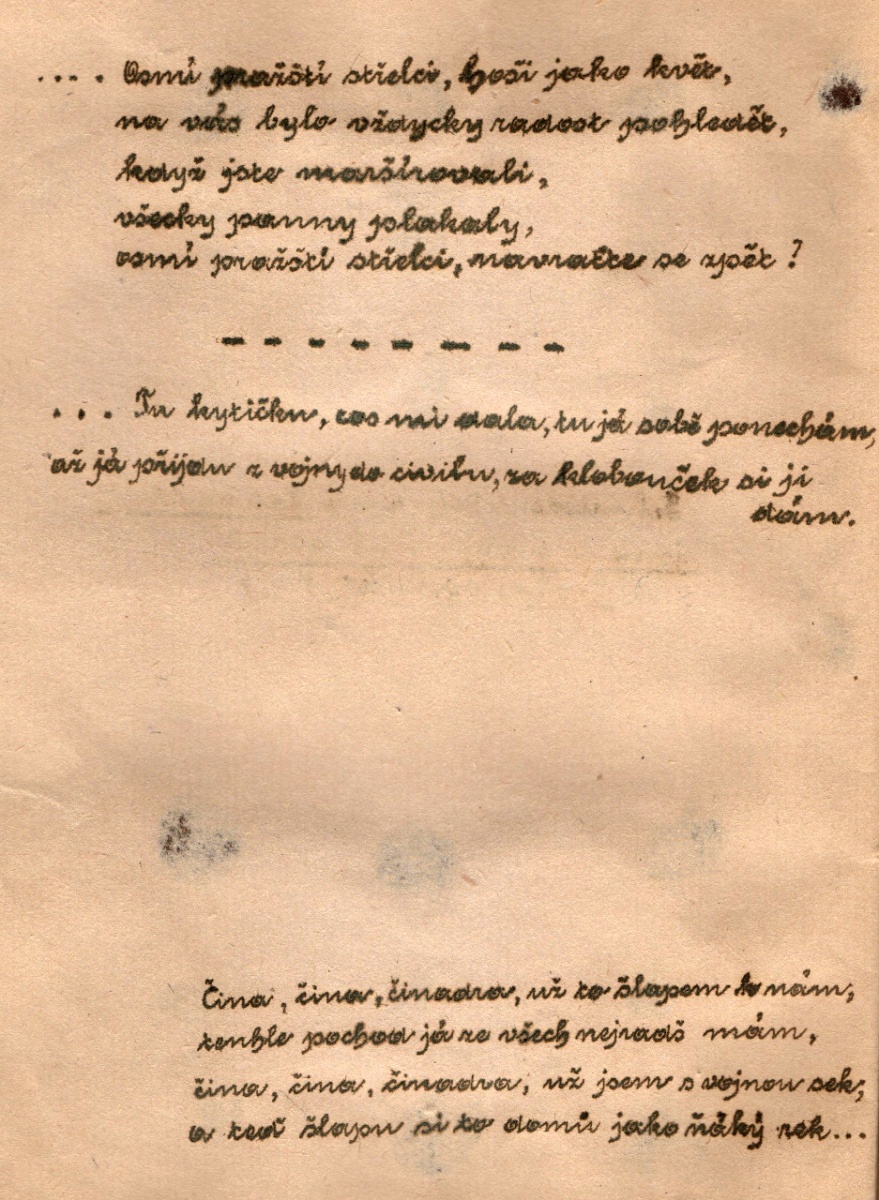 .... Osmí pražští střelci, hoši jako květ,
na vás bylo vždycky radost pohledět,
když jste maršírovali,
všecky panny plakaly,
osmí pražští střelci, navraťte se zpět?
- - - - - - - -
... Tu kytičku, cos mi dala, tu já sobě ponechám,
až já přijdu z vojny do civilu, za klobouček si ji
dám.
Čina, čina, činadra, už to šlapem k nám,
tenhle pochod já ze všech nejradš mám,
čina, čina, činadra, už jsem s vojnou sek,
a teď šlapu si to domů jako ňáký rek...